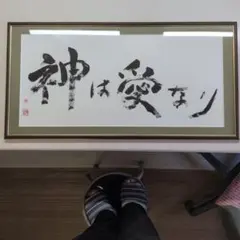 神は愛なり